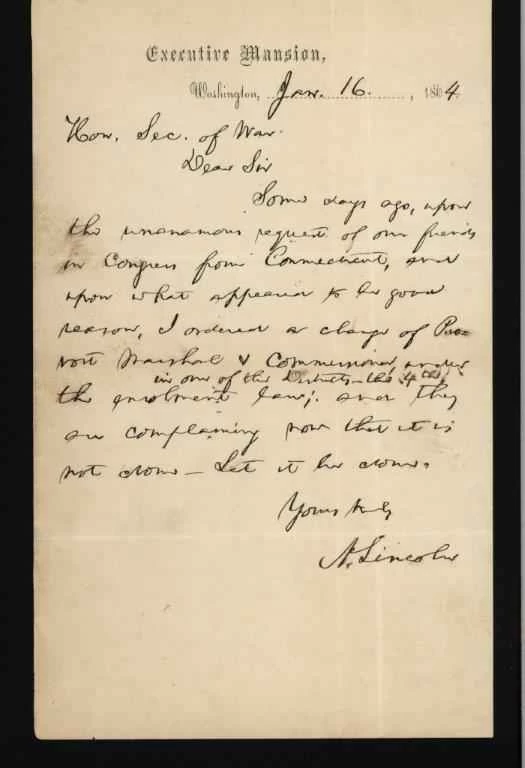 Executive Mansion,
Washington, Jan. 16. , 1864.
Hon. Sec. of War.
Dear Sir
Some days ago, upon
the unanamous request of our friends
in Congress from Connecticut, and
upon what appeared to be good
reason, I ordered a change of Pro-
vost Marshal & Commissioner, under
in one of the Districts—the 4th
the enrolment law; and they
are complaining now that it is
not done— Let it be done.
Yours truly
A. Lincoln